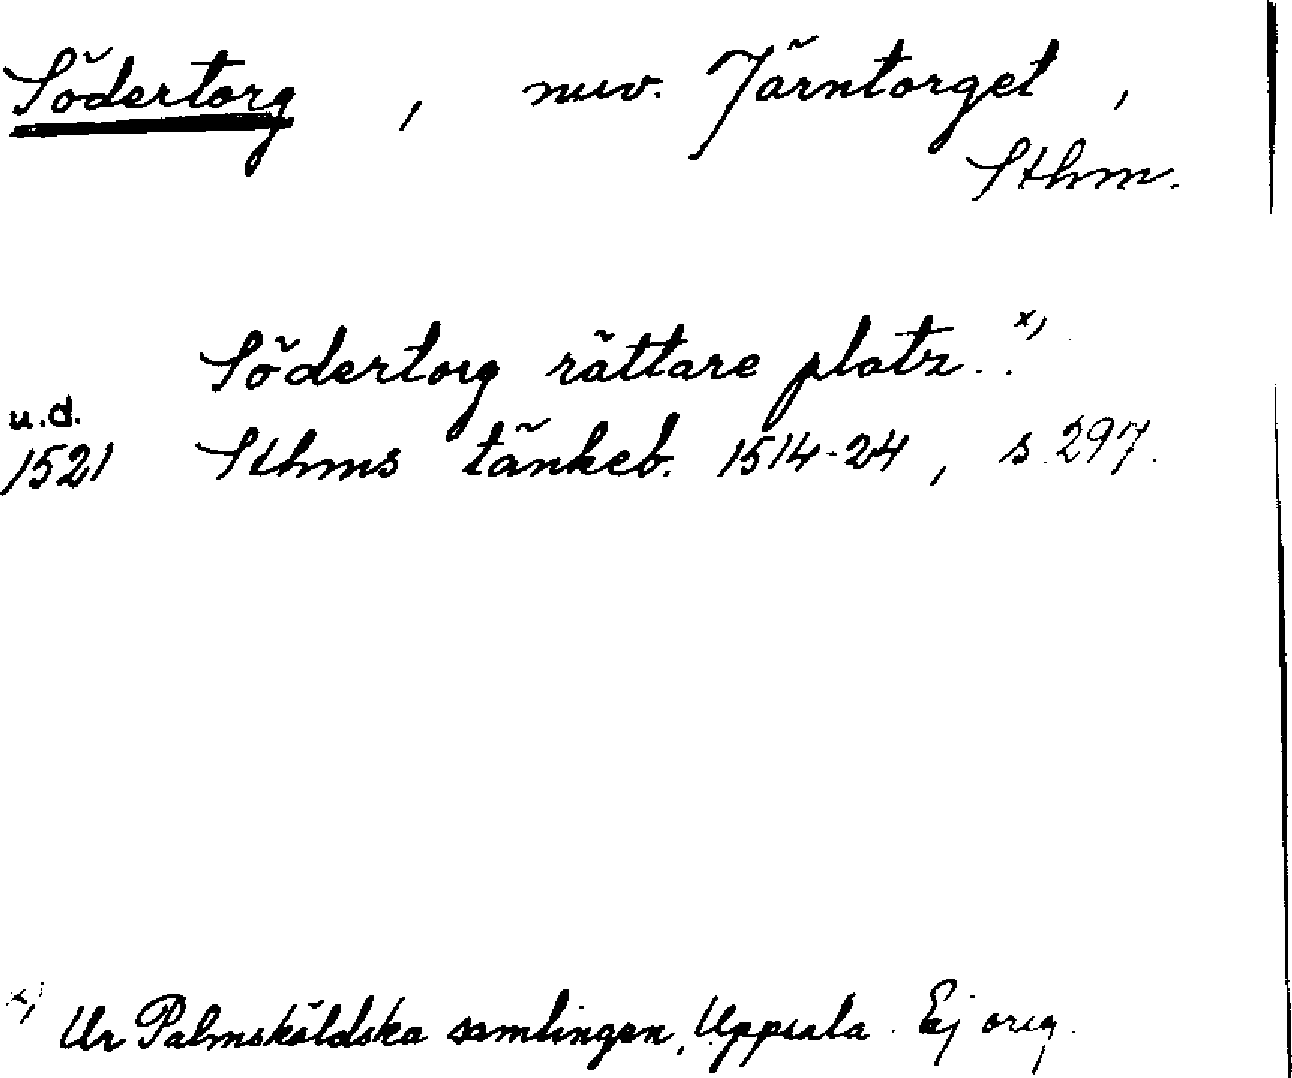 Södertorg, nuv. Järntorget,
Sthm.
Södertorg rättare platz..x)
u.d.
1521 Sthms tänkeb. 1514-24, s. 297.
x) Ur Palmsköldska samlingen, Uppsala. Ej orig.